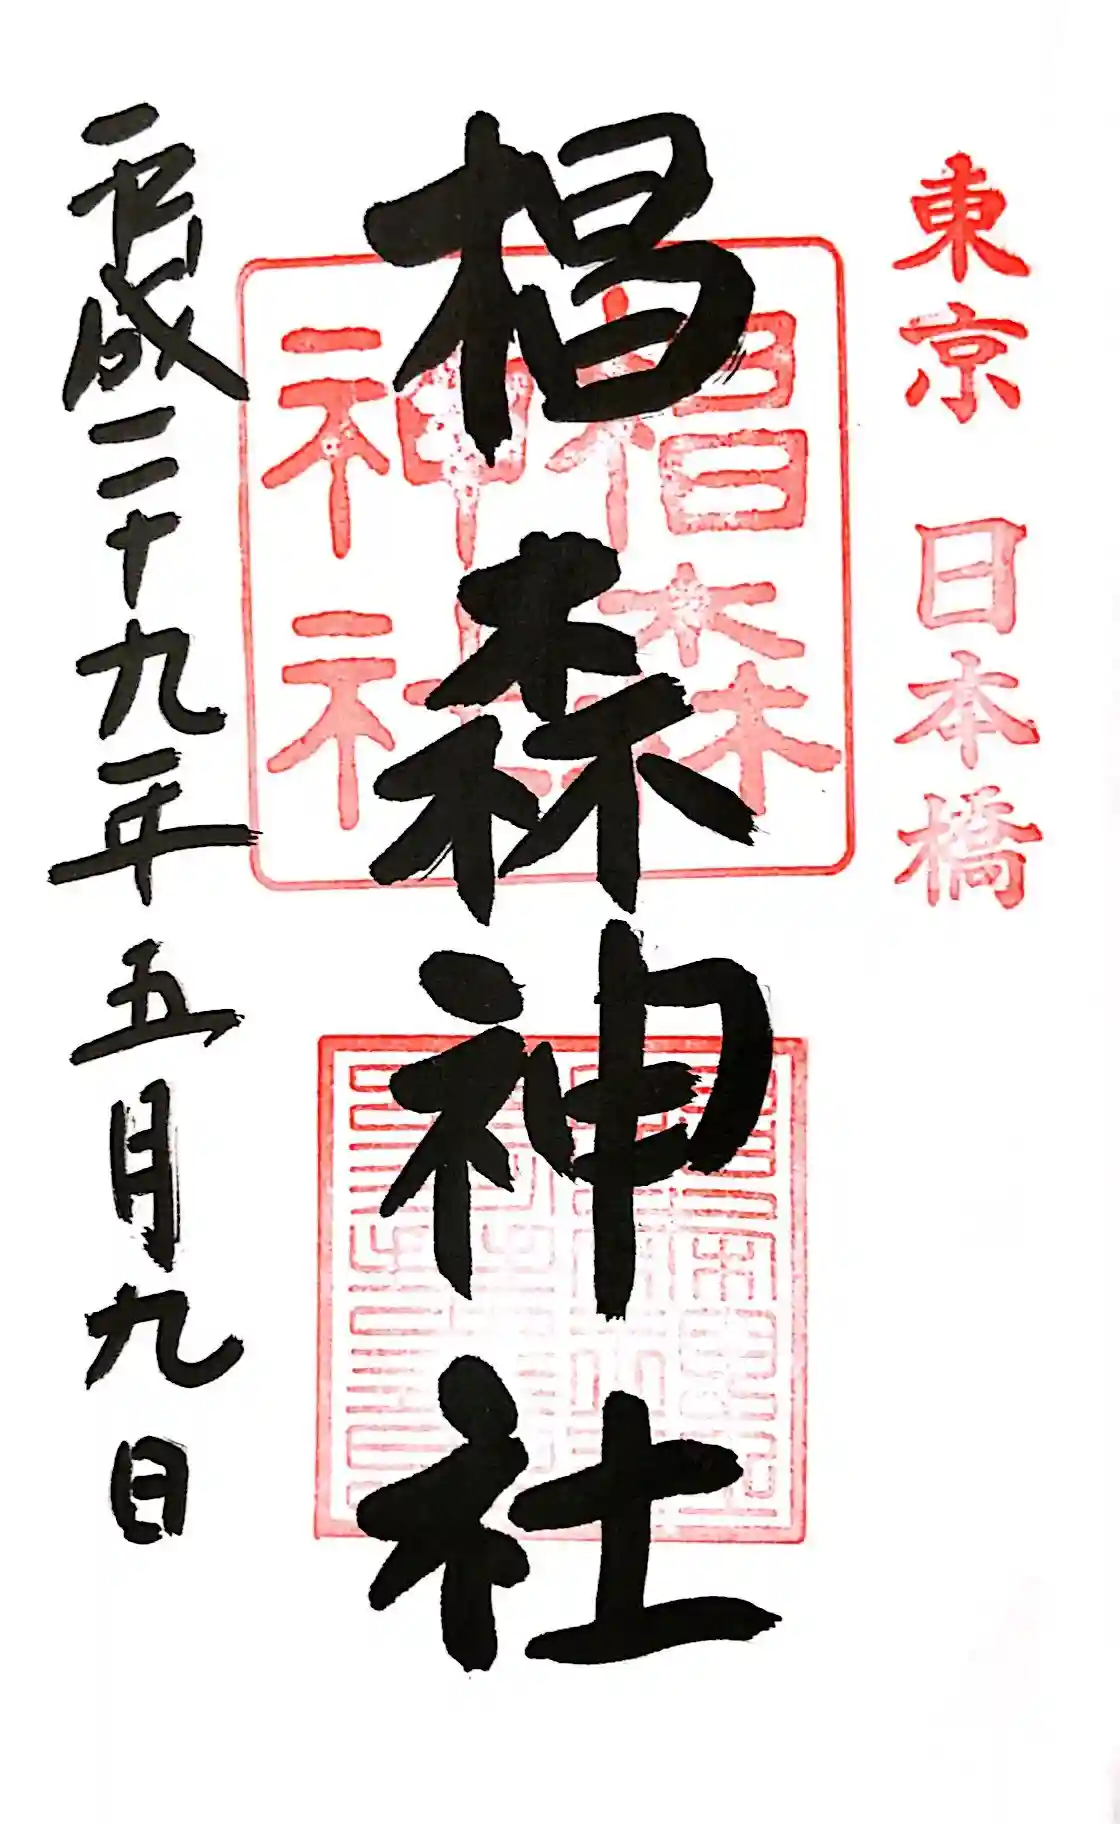 東京 日本橋
椙森神社
椙森
神社
平成二十九年五月九日